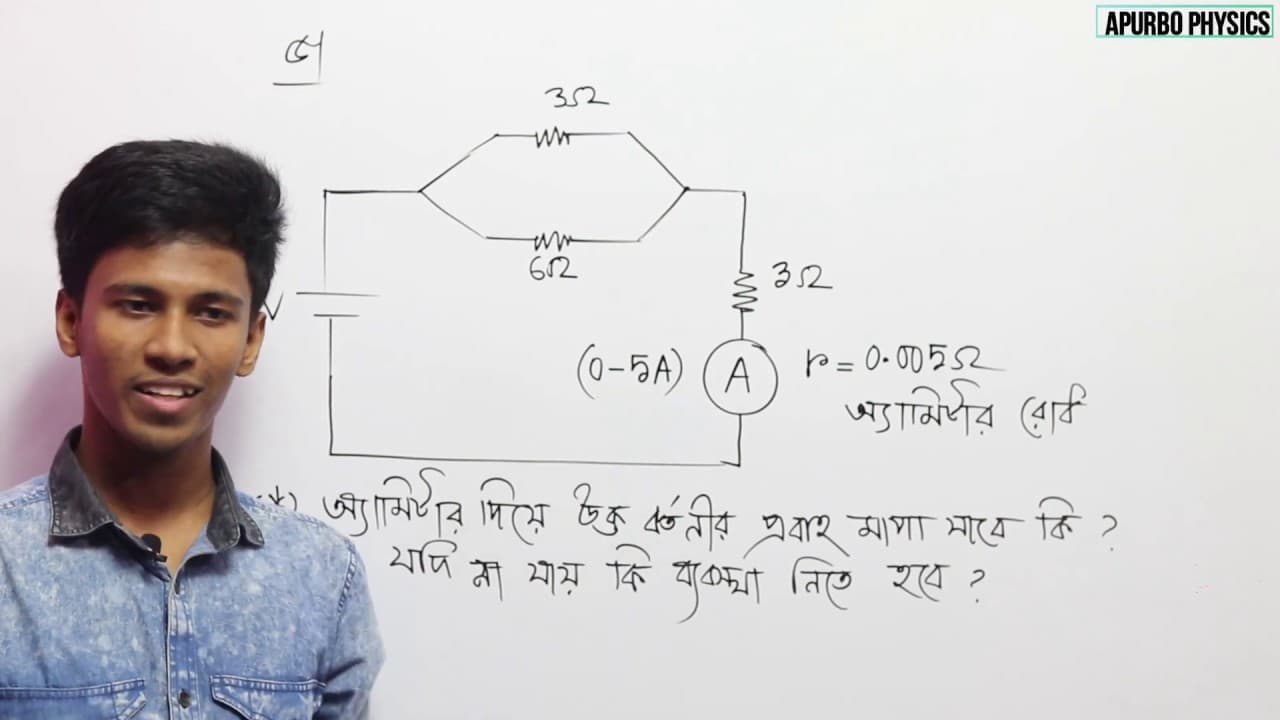 APURBO PHYSICS
3Ω
6Ω
3Ω
V
(0-5A)
A
r = 0.005Ω
অ্যামিটার রোধ
অ্যামিটার দিয়ে উক্ত বর্তনীর প্রবাহ মাপা যাবে কি ?
যদি না যায় কি ব্যবস্থা নিতে হবে ?